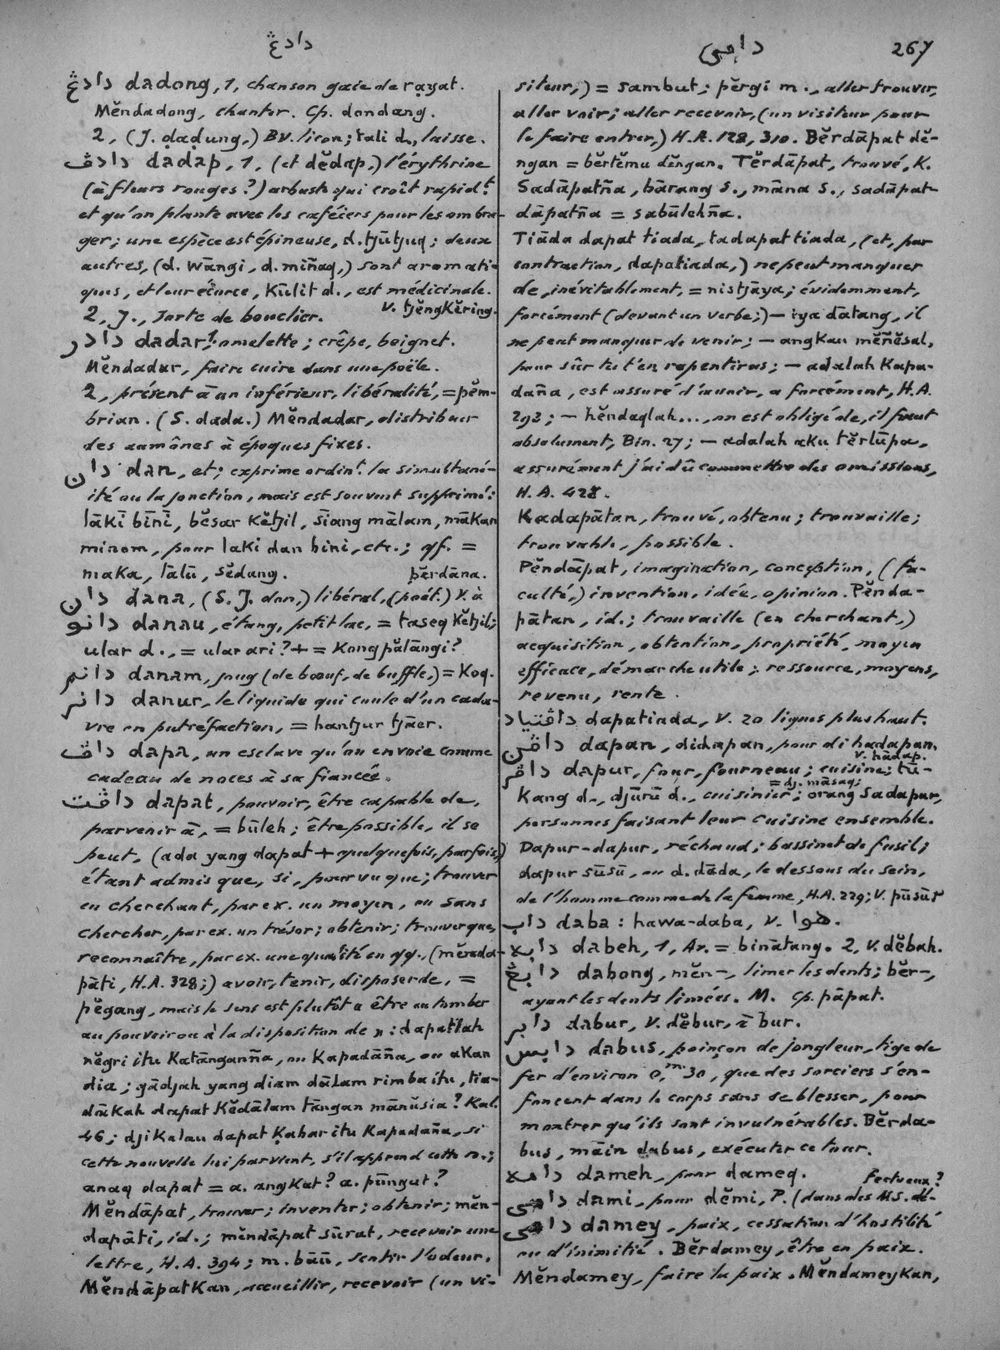 دادڠ
دامي
267
دادڠ dadong, 1, chanson gaie de rạyat.
Mĕndadong, chanter. Cp. dondang.
2, (J. ḍaḍung,) BV. licou; tali d., laisse.
دادڤ dadap, 1, (et dĕdap,) l'érythrine
(à fleurs rouges?) arbuste qui croît rapid.t
et qu'on plante avec les caféiers pour les ombra-
ger; une espèce est épineuse, d. tjūtjuq; deux
autres, (d. wāngi, d. miñaq,) sont aromati-
ques, et leur écorce, Kūlit d., est médicinale.
2, J., sorte de bouclier. V. tjĕngKĕring.
دادر dadar, 1, omelette; crêpe, beignet.
Mĕndadar, faire cuire dans une poêle.
2, présent à un inférieur, libéralité, = pĕm-
brian. (S. dada.) Mĕndadar, distribuer
des aumônes à époques fixes.
دان dan, et; exprime ordin.t la simultané-
ité ou la jonction, mais est souvent supprimé:
lākī bīnī, bĕsar Kĕtjil, sīang mālam, māKan
minom, pour laki dan bini, etc.; qf. =
maKa, lālū, sĕdang. pĕrdāna.
دان dana, (S. J. don,) libéral, (poét.) V. à
دانو danau, étang, petit lac, = taseq Kĕtjil;
ular d., = ular ari? + = Kong pălāngi?
دانم danam, joug (de bœuf, de buffle,) = Koq.
دانر danur, le liquide qui coule d'un cada-
vre en putréfaction, = hantjur tjāer.
داڤ dapa, un esclave qu'on envoie comme
cadeau de noces à sa fiancée.
داڤت dapat, pouvoir, être capable de,
parvenir à, = būleh; être possible, il se
peut, (ada yang dapat + quelquefois, parfois,)
étant admis que, si, pourvu que; trouver
en cherchant, par ex. un moyen, ou sans
chercher, par ex. un trésor; obtenir; trouver que,
reconnaître, par ex. une qualité en qq., (mĕnda-
pāti, H.A. 328;) avoir, tenir, disposer de, =
pĕgang, mais le sens est plutôt à être ou tomber
au pouvoir ou à la disposition de n: dapatlah
nĕgri itu Katānganña, ou Kapadāña, ou aKan
dia; gādjah yang diam dālam rimba itu, tia-
dāKah dapat Kĕdālam tāngan mānŭsia? Kal.
46; djiKalau dapat Ḳabar itu Kapadaña, si
cette nouvelle lui parvient, s'il apprend cette n.;
anaq dapat = a. angKat? a. pūngut?
Mĕndāpat, trouver; inventer; obtenir; mĕn-
dapāti, id.; mĕndāpat sūrat, recevoir une
lettre, H.A. 394; m. bāū, sentir l'odeur.
MĕndāpatKan, accueillir, recevoir (un vi-
siteur,) = sambut; pĕrgi m., aller trouver,
aller voir; aller recevoir, (un visiteur pour
le faire entrer,) H.A. 128, 310. Bĕrdāpat dĕ-
ngan = bĕrtĕmu dĕngan. Tĕrdāpat, trouvé, K.
Sadāpatña, bārang s., māna s., sadāpat-
dāpatña = sabūlehña.
Tiāda dapat tiada, tadapat tiada, (et, par
contraction, dapatiada,) ne peut manquer
de, inévitablement, = nistjāya; évidemment,
forcément (devant un verbe;) — iya dātang, il
ne peut manquer de venir; — angKau mĕñĕsal,
pour sûr tu t'en repentiras; — adalah Kapa-
daña, est assuré d'avoir, a forcément, H.A.
293; — hĕndaqlah..., on est obligé de, il faut
absolument, Bin. 27; — adalah aKu tĕrlūpa,
assurément j'ai dû commettre des omissions,
H.A. 428.
Kadapātan, trouvé, obtenu; trouvaille;
trouvable, possible.
Pĕndāpat, imagination, conception, (fa-
culté,) invention, idée, opinion. Pĕnda-
pātan, id.; trouvaille (en cherchant,)
acquisition, obtention, propriété, moyen
efficace, démarche utile; ressource, moyens,
revenu, rente.
داڤتياد dapatiada, V. 20 lignes plus haut.
داڤن dapan, didapan, pour di hadapan,
V. hādap.
داڤر dapur, four, fourneau; cuisine; tū-
Kang d., djūrū d., = dj. māsaq; cuisinier; orang sadapur,
personnes faisant leur cuisine ensemble.
Dapur-dapur, réchaud; bassinet de fusil;
dapur sūsū, ou d. dāda, le dessous du sein,
de l'homme comme de la femme, H.A. 229; V. pūsūt
داب daba: hawa-daba, V. هوا.
دابه dabeh, 1, Ar. = binātang. 2, V. dĕbah.
دابڠ dabong, mĕn-, limer les dents; bĕr-,
ayant les dents limées. M. Cp. pāpat.
دابر dabur, V. dĕbur, ĕ bur.
دابس dabus, poinçon de jongleur, tige de
fer d'environ 0,m 30, que des sorciers s'en-
foncent dans le corps sans se blesser, pour
montrer qu'ils sont invulnérables. Bĕrda-
bus, māin dabus, exécuter ce tour.
دامه dameh, pour dameq.
دامي dami, pour dĕmi, P. (dans des MS. dé-
fectueux?
دامي damey, paix, cessation d'hostilité
ou d'inimitié. Bĕrdamey, être en paix.
Mĕndamey, faire la paix. MĕndameyKan,